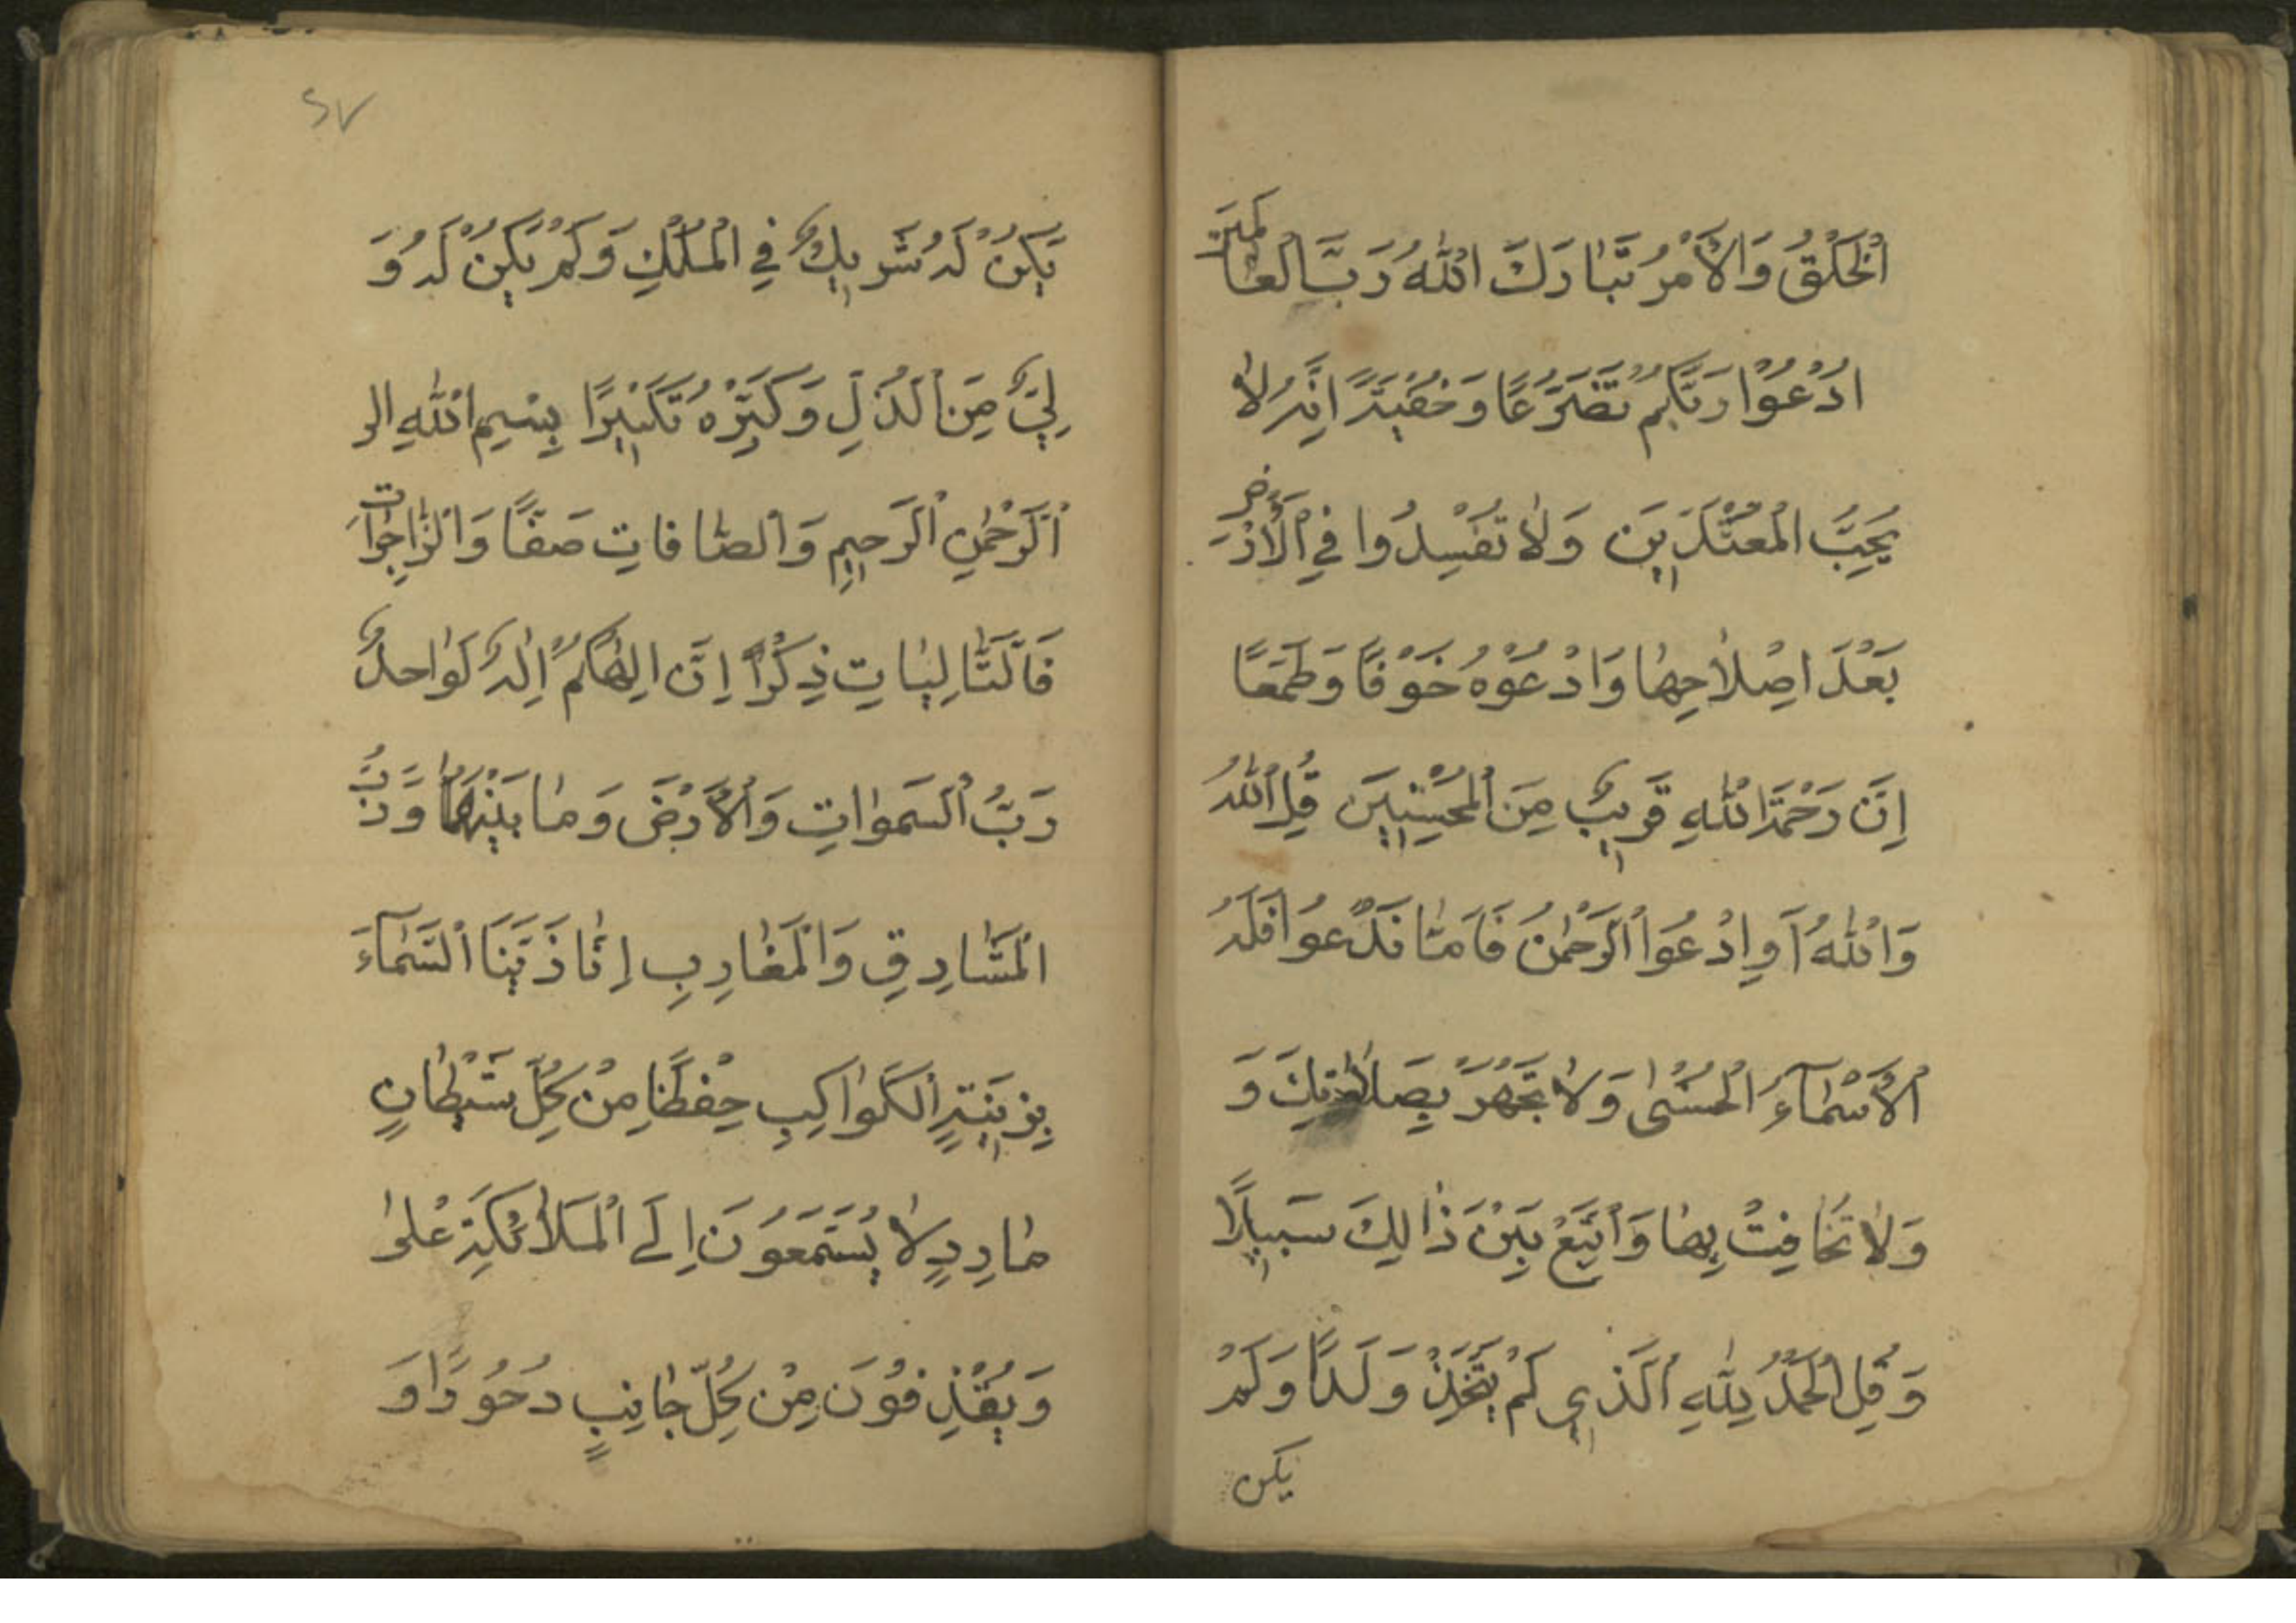 اَلْخَلْقُ وَالْاَمْرُ تَبَارَكَ اللّٰهُ رَبُّ الْعَالَمِيْنَ
اُدْعُوْا رَبَّكُمْ تَضَرُّعًا وَخُفْيَةً اِنَّهُ لَا
يُحِبُّ الْمُعْتَدِيْنَ وَلَا تُفْسِدُوا فِي الْاَرْضِ
بَعْدَ اِصْلَاحِهَا وَادْعُوْهُ خَوْفًا وَطَمَعًا
اِنَّ رَحْمَةَ اللّٰهِ قَرِيْبٌ مِنَ الْمُحْسِنِيْنَ قُلِ اللّٰهُ
وَاللّٰهُ اَوِادْعُوَا الرَّحْمٰنَ فَاَمَّا تَدْعُوا فَلَهُ
الْاَسْمَآءُ الْحُسْنٰى وَلَا تَجْهَرْ بِصَلَاتِكَ وَ
وَلَا تُخَافِتْ بِهَا وَابْتَغِ بَيْنَ ذَالِكَ سَبِيْلًا
وَقُلِ الْحَمْدُ لِلّٰهِ الَّذِي لَمْ يَتَّخِذْ وَلَدًا وَلَمْ
يكن
٢٧
يَكُنْ لَهُ شَرِيْكٌ فِي الْمُلْكِ وَلَمْ يَكُنْ لَهُ وَ
لِيٌّ مِنَ الذُّلِّ وَكَبِّرْهُ تَكْبِيْرًا بِسْمِ اللّٰهِ الر
اَلرَّحْمٰنِ الرَّحِيْمِ وَالصَّافَّاتِ صَفًّا وَالزَّاجِرَاتِ
فَالتَّالِيَاتِ ذِكْرًا اِنَّ اِلٰهَكُمْ اِلٰهٌ لَوَاحِدٌ
رَبُّ السَّمٰوَاتِ وَالْاَرْضِ وَمَا بَيْنَهُمَا وَرَبُّ
الْمَشَارِقِ وَالْمَغَارِبِ اِنَّا زَيَّنَا السَّمَآءَ
بِزِيْنَةٍ الْكَوَاكِبِ حِفْظًا مِنْ كُلِّ شَيْطَانٍ
مَارِدٍ لَا يَسَّمَّعُوْنَ اِلَى الْمَلَائِكَةِ عْلٰى
وَيُقْذِفُوْنَ مِنْ كُلِّ جَانِبٍ دُحُوْرًا وَ